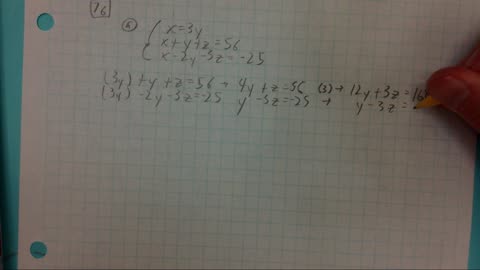 76
a) x=3y
x+y+z=56
x-2y-3z=-25
(3y)+y+z=56 → 4y+z=56 (3)→ 12y+3z=168
(3y)-2y-3z=-25 y-3z=-25 → y-3z=